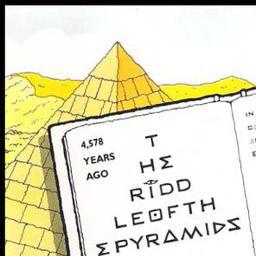 4,578
YEARS
AGO
T
HΣ
RIDD
LEOFTH
ΣPYRAMIDΣ
IN